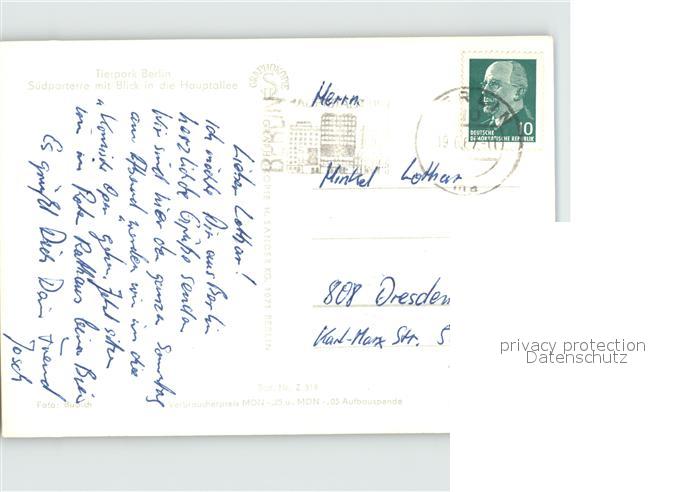 Tierpark Berlin
Südparterre mit Blick in die Hauptallee
Lieber Lothar!
Ich möchte Dir aus Berlin
herzliche Grüße senden
Wir sind hier den ganzen Sonntag
am Abend werden wir in die
"Komische Oper" gehen. Jetzt sitzen
wir im Roten Rathaus beim Bier
Es grüßt Dich Dein Freund
Josch
Herrn
Lothar
808 Dresden
Karl-Marx Str. 5
DEUTSCHE
DEMOKRATISCHE REPUBLIK
10
BERLIN
Best. Nr. Z 919
Foto:
Verbraucherpreis MDN -,25 u. MDN -,05 Aufbauspende
privacy protection
Datenschutz